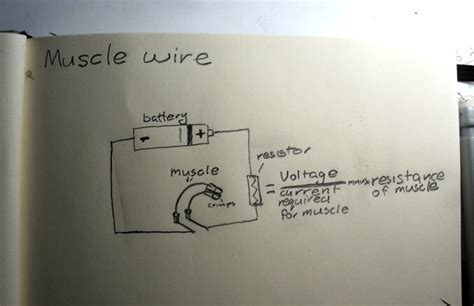 Muscle wire
battery
- +
resistor
muscle
crimps
= Voltage minus resistance
current of muscle
required
for muscle